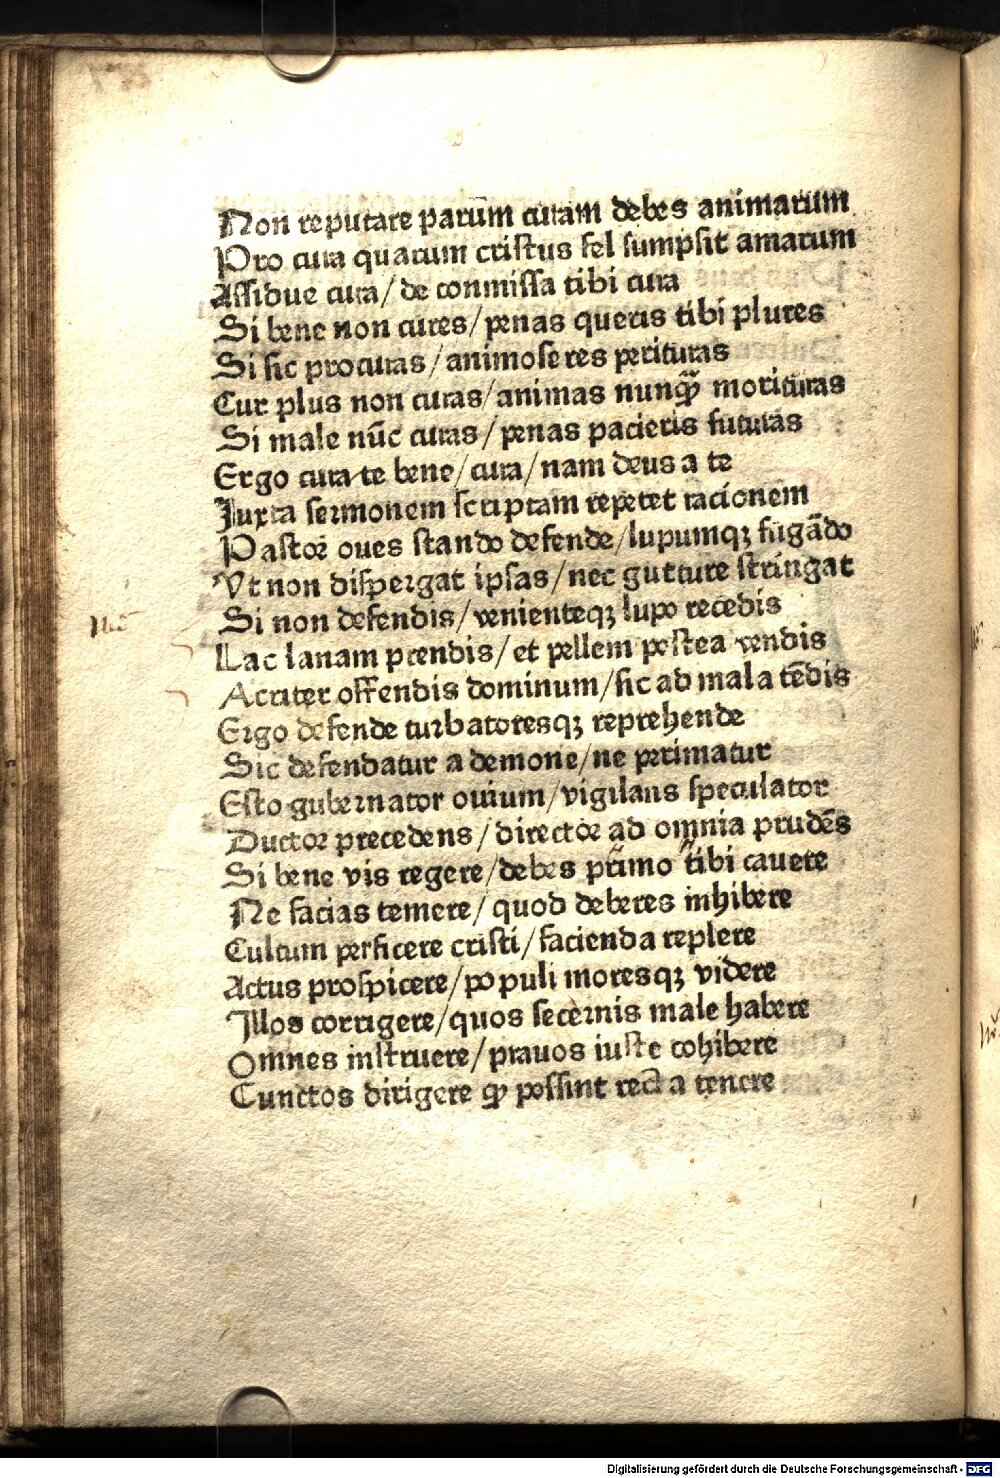 Non reputare parūm curam debes animarum
Pro cura quarum cristus fel sumpsit amarum
Assidue cura/ de conmissa tibi cura
Si bene non cures/penas queris tibi plures
Si sic procuras/animose res perituras
Cur plus non curas/animas nunqꝫ morituras
Si male nūc curas/penas pacieris futuras
Ergo cura te bene/cura/nam deus a te
Juxta sermonem scriptam repetet racionem
Pastor oues stando defende/lupumqꝫ fugādo
Vt non dispergat ipsas/nec gutture stringat
Si non defendis/venienteqꝫ lupo recedis
Lac lanam prendis/et pellem postea vendis
Acriter offendis dominum/sic ad mala tēdis
Ergo defende turbatoresqꝫ reprehende
Sic defendatur a demone/ne perimatur
Esto gubernator ouium/vigilans speculator
Ductor precedens/director ad omnia prudēs
Si bene vis regere/debes primo tibi cauere
Ne facias temere/quod deberes inhibere
Cultum perficere cristi/facienda replere
Actus prospicere/populi moresqꝫ videre
Illos corrigere/quos secernis male habere
Omnes instruere/prauos iuste cohibere
Cunctos dirigere qꝫ possint recta tenere
Digitalisierung gefördert durch die Deutsche Forschungsgemeinschaft - DFG